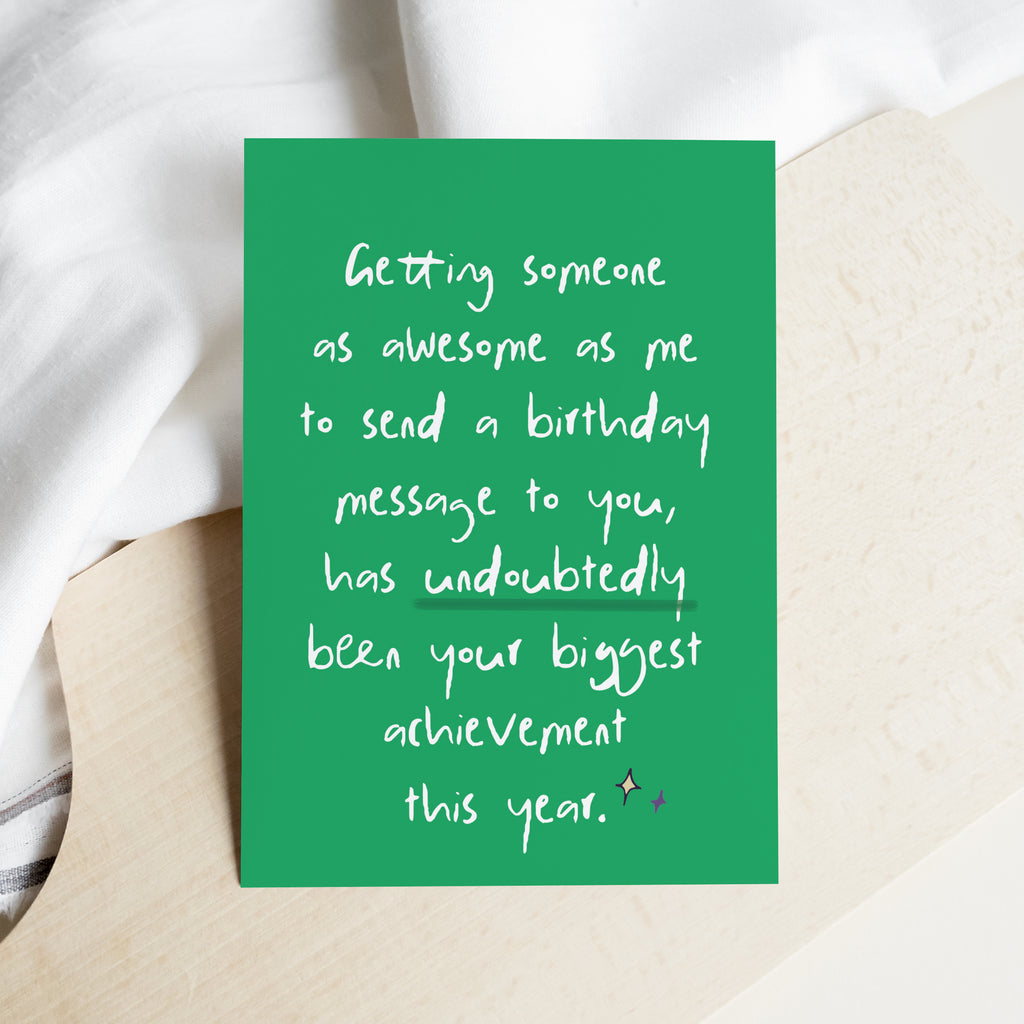 Getting someone
as awesome as me
to send a birthday
message to you,
has undoubtedly
been your biggest
achievement
this year.